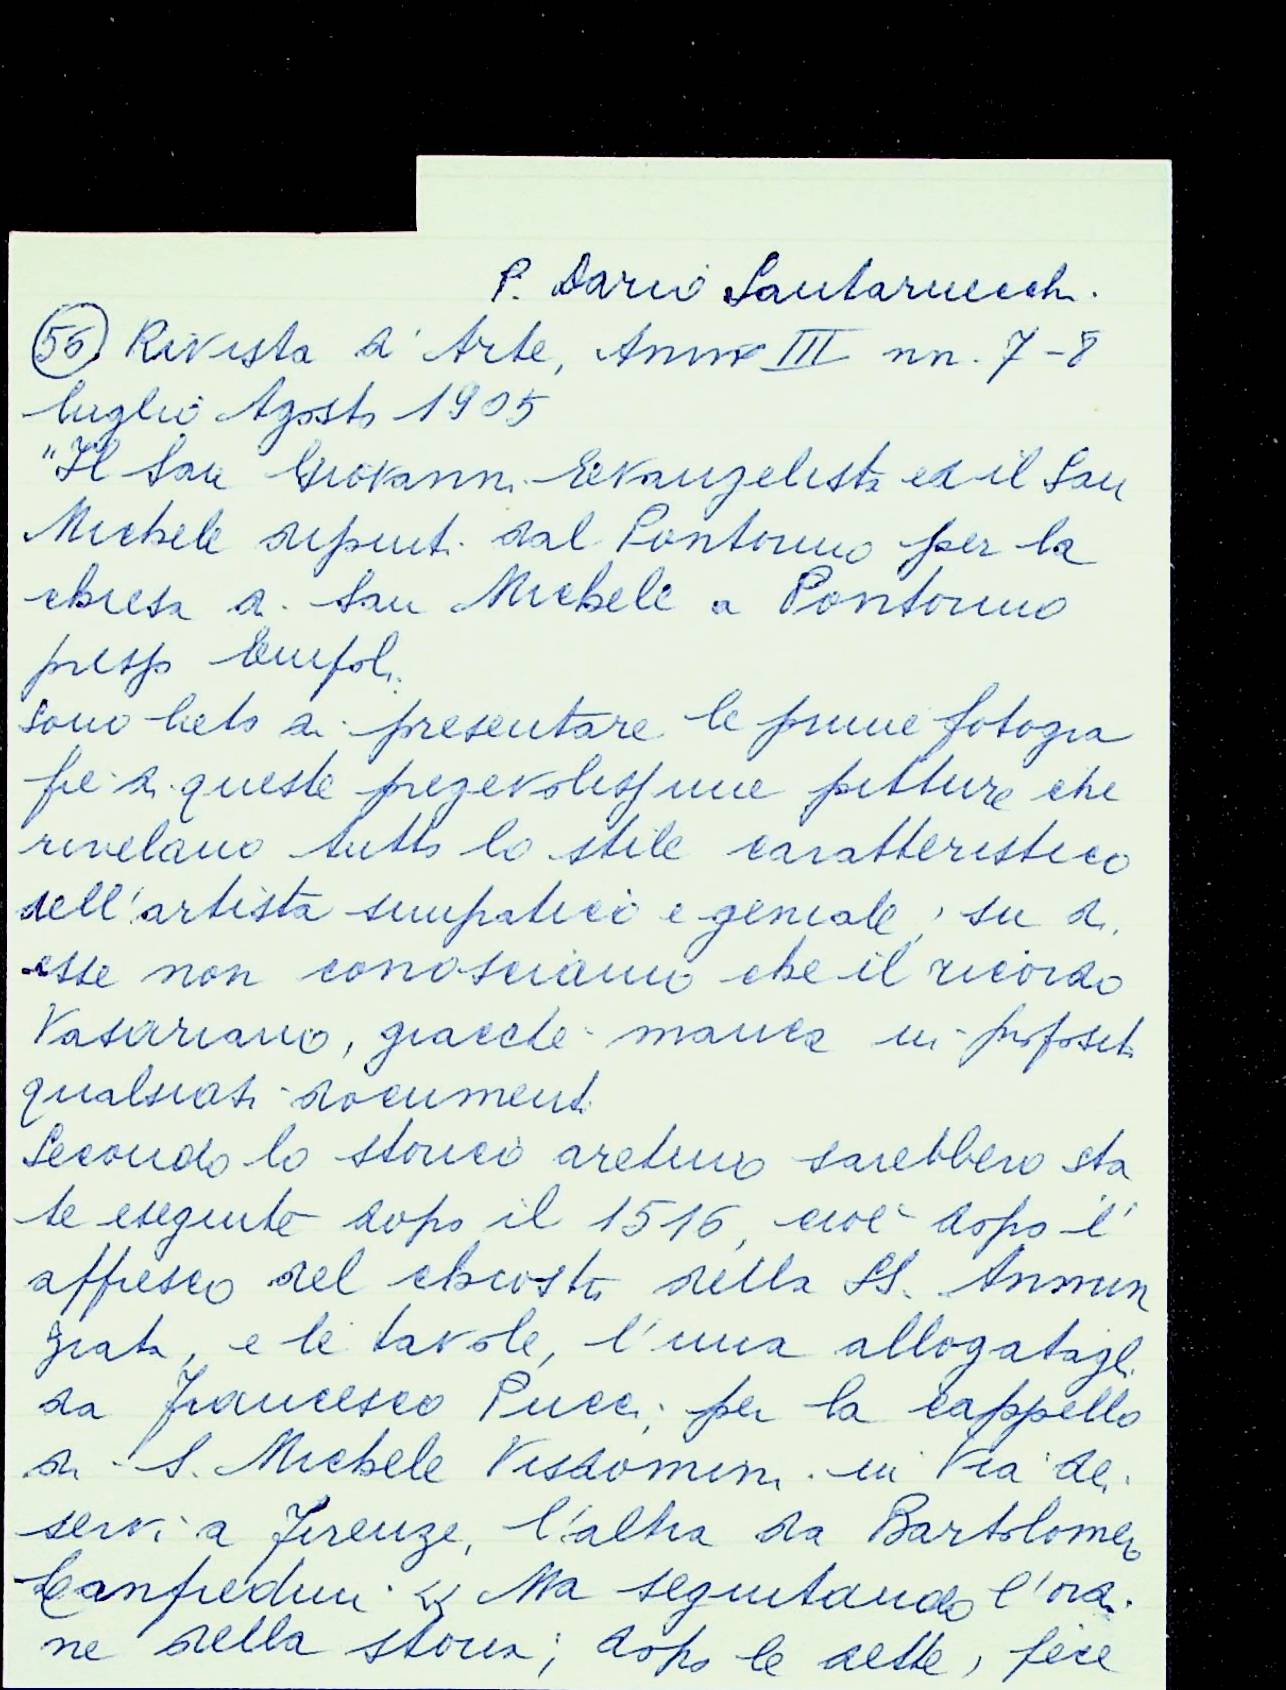 P. Dario Santarnecchi.
56 Rivista d'Arte, Anno III nn. 7-8
luglio Agosto 1905
"Il San Giovanni Evangelista ed il San
Michele dipinti dal Pontormo per la
chiesa di San Michele a Pontormo
presso Empoli.
Sono lieto di presentare le prime fotogra
fie di queste pregevolissime pitture che
rivelano tutto lo stile caratteristico
dell'artista simpatico e geniale, su di
esse non conosciamo che il ricordo
Vasariano, giacchè manca in proposito
qualsiasi documento
Secondo lo storico aretino sarebbero sta
te eseguite dopo il 1516, cioè dopo l'
affresco del chiostro della SS. Annun
ziata, e le tavole, l'una allogatagli
da Francesco Pucci, per la cappella
di S. Michele Visdomini in Via dei
servi a Firenze, l'altra da Bartolomeo
Lanfredini. << Ma seguitando l'ordi
ne della storia; dopo le dette, fece